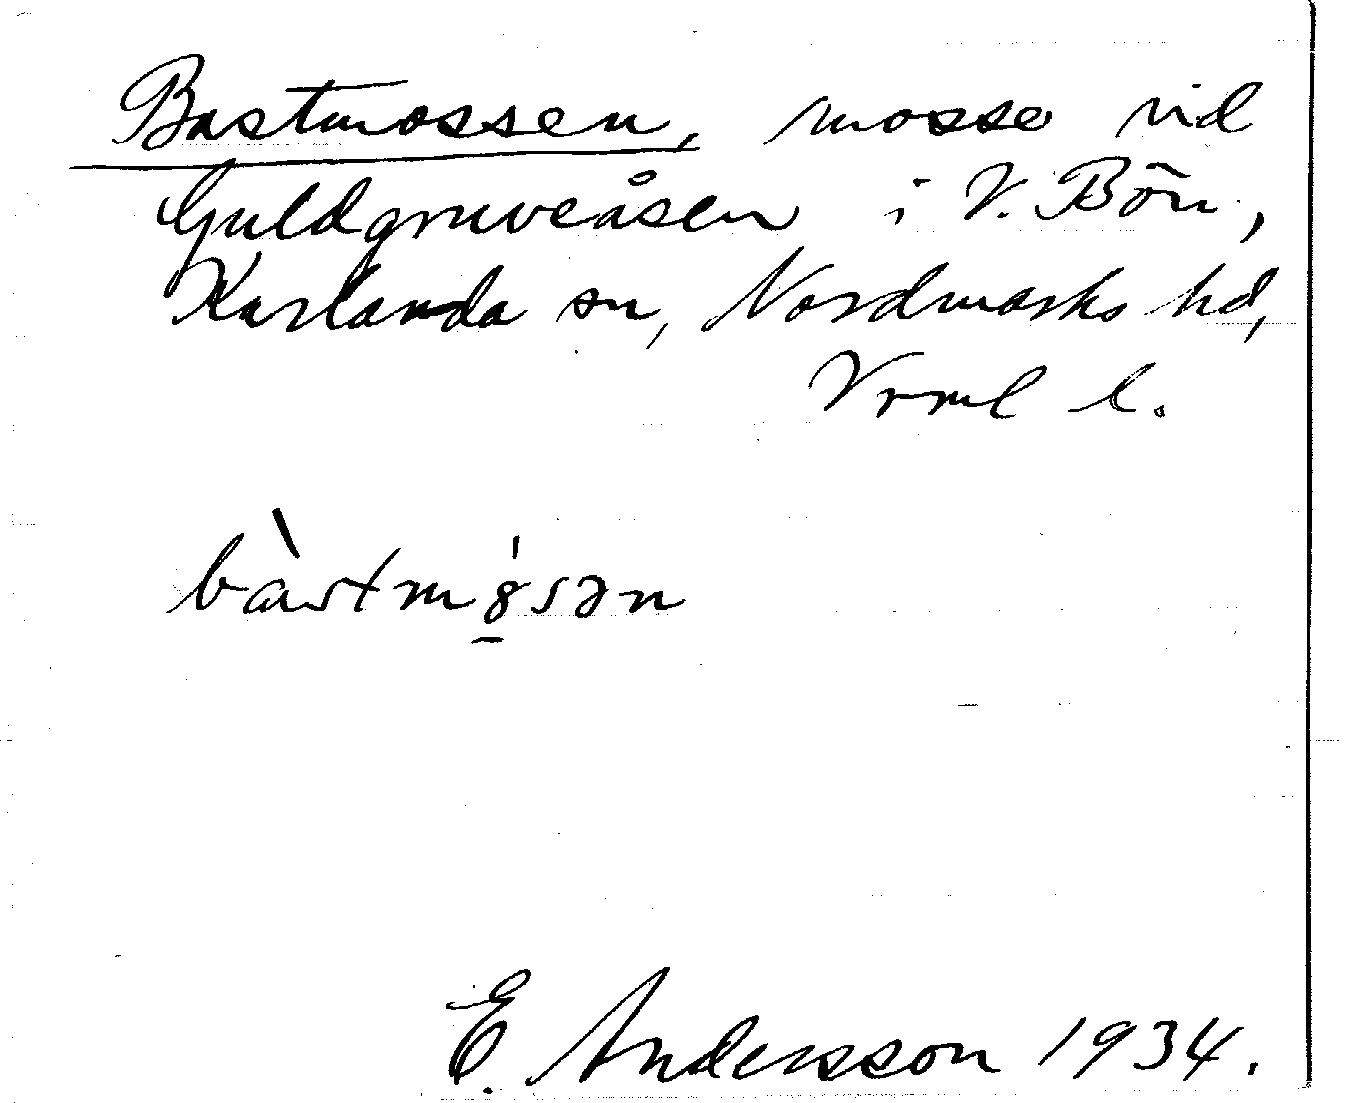 Bastmossen, mosse vid
Guldgruveåsen i V. Bön,
Karlanda sn, Nordmarks hd,
Vrml l.
bàstmo̱̍sən
E. Andersson 1934.